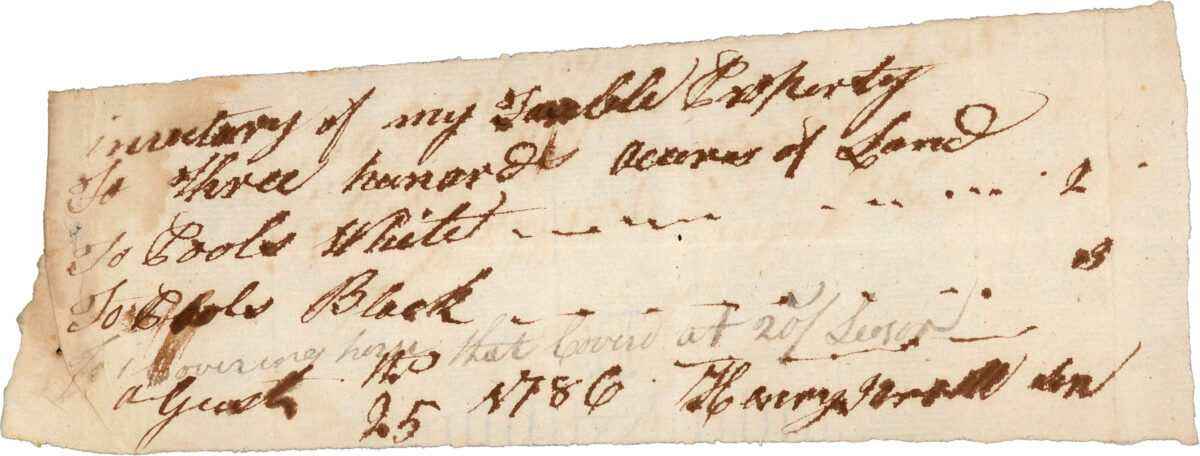 inventary of my Taxble Property
To Three hunard accures of Land
To Pools White - - - - - - - 2
To Pools Black - - - - - - 3
To 1 Covering horse that Coverd at 20/ Seeson
agust th 25 1786 Henry Terrell sen